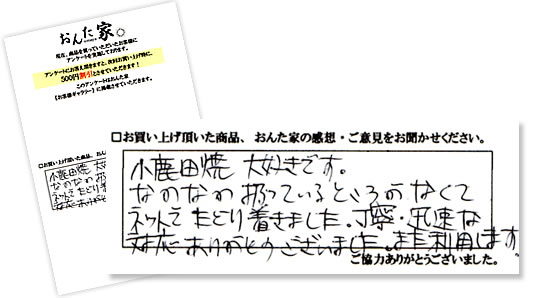 おんた家。
現在、商品を買っていただいたお客様に
アンケートを実施しております。
アンケートにお答え頂きますと、次回お買い上げ時に、
500円割引とさせていただきます!
このアンケートはおんた家
【お客様ギャラリー】に掲載させていただきます。
□お買い上げ頂いた商品、お
小鹿田焼 大
なのなの 扱っ
ネットで たど
対応に ありが
□お買い上げ頂いた商品、おんた家の感想・ご意見をお聞かせください。
小鹿田焼 大好きです。
なのなの 扱っているところがなくて
ネットで たどり着きました。丁寧・迅速な
対応に ありがとうございました。また利用します。
ご協力ありがとうございました。